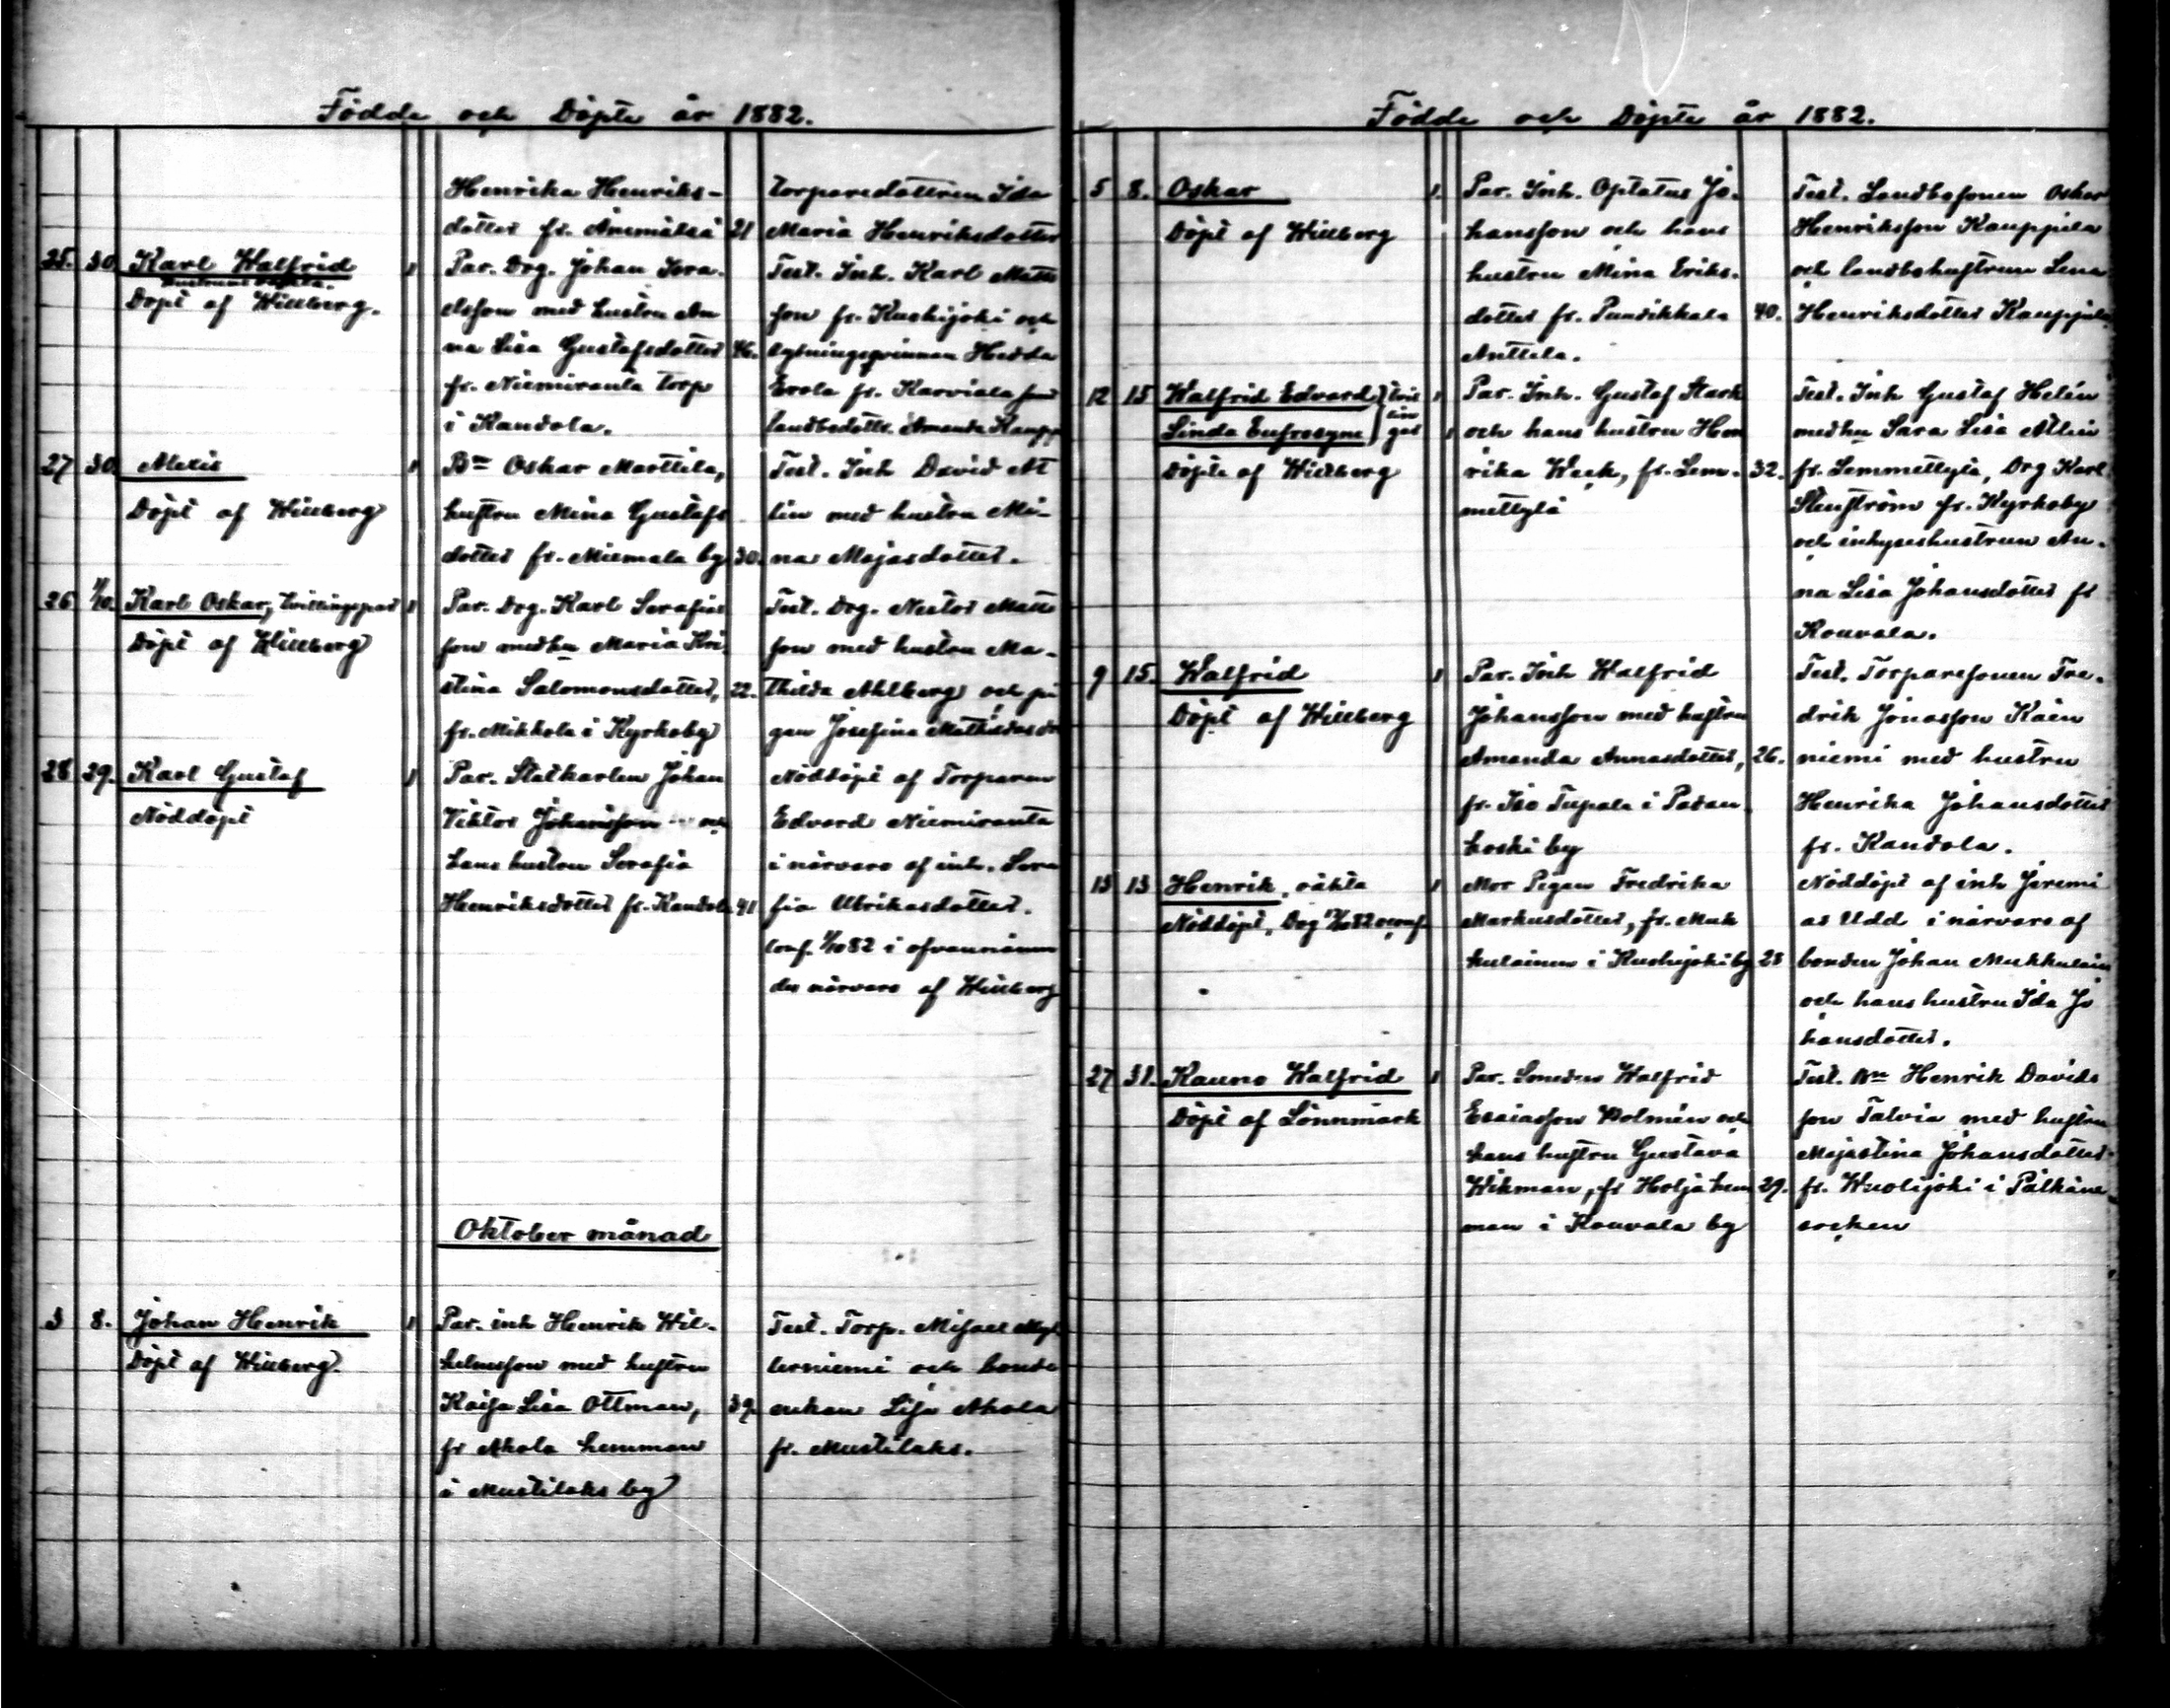 Födde och Döpte år 1882.
Henrika Henriks-
dotter fr. Ämmälsä 21
torparedottren Ida
Maria Henriksdotter
25. 30. Karl Walfrid 1
Döpt af Willberg.
Par. Drg. Johan Isra-
elsson med hustru An
na Lisa Gustafsdotter 46.
fr. Niemiranta torp
i Kandola.
Test. Inh. Karl Matts
son fr. Kuohijoki och
sytningsqvinnan Hedda
Erola fr. Karviala samt
landbodottr. Amanda Kaupp
27 30. Alexis 1
Döpt af Willberg
Bn Oskar Marttila,
hustru Mina Gustafs
dotter fr. Miemala by 30.
Test. Inh David At
lin med hustru Mi-
na Majasdotter.
26 1/10. Karl Oskar, Tvillingspar 1
Döpt af Willberg
Par. Drg. Karl Serafias
son med hu Maria Kri-
stina Salomonsdotter, 22.
fr. Mikkola i Kyrkoby
Test. Drg. Nestor Matts
son med hustru Ma-
thilda Ahlberg och pi
gan Josefina Mathildasdr
28 29. Karl Gustaf 1
Nöddöpt
Par. Statkarlen Johan
Viktor Johansson och
hans hustru Serafia
Henriksdotter fr. Kandola 41
Nöddöpt af Torparen
Edvard Niemiranta
i närvaro af inh. Sera
fia Ulrikasdotter.
conf. 1/10 82 i ofvannämn
des närvaro af Willberg
Oktober månad
3 8. Johan Henrik 1
Döpt af Willberg.
Par. inh Henrik Wil-
helmsson med hustru
Kaisa Lisa Ottman, 39.
fr Ahola hemman
i Mustilaks by
Test. Torp. Misael Myl
lerniemi och bonde
enkan Lisa Ahola
fr. Mustilaks.
Födde och Döpte år 1882.
5 8. Oskar 1.
Döpt af Willberg
Par. Inh. Optatus Jo-
hansson och hans
hustru Mina Eriks-
dotter fr. Puusikkala 40.
Anttila.
Test. Landbosonen Oskar
Henriksson Kauppila
och landbohustrun Lena
Henriksdotter Kauppila
12 15 Walfrid Edvard } tvil 1
lin
Linda Eufrosyne } gar 1
Döpte af Willberg
Par. Inh. Gustaf Stark
och hans hustru Hen
rika Week, fr. Lem- 32.
mettylä
Test. Inh Gustaf Helén
med hu Sara Lisa Atlin
fr. Lemmettylä, Drg Karl
Stenström fr. Kyrkoby
och inhyseshustrun An-
na Lisa Johansdotter fr
Rouvala.
9 15. Walfrid 1
Döpt af Willberg
Par. Inh Walfrid
Johansson med hustru
Amanda Annasdotter, 26.
fr. Iso Tupala i Padan
koski by
Test. Torparesonen Fre-
drik Jonasson Käen
niemi med hustru
Henrika Johansdotter
fr. Kandola.
13 13 Henrik, oäkta 1
Nöddöpt,
Mor Pigan Fredrika
Markusdotter, fr. Muk
kulainen i Kuohijoki by 28
Nöddöpt af inh Jeremi
as Udd i närvaro af
bonden Johan Mukkulain
och hans hustru Ida Jo
hansdotter.
27 31. Kauno Walfrid 1
Döpt af Lönnmark
Par. Smeden Walfrid
Esaiasson Holmén och
hans hustru Gustava
Wikman, fr Holja hem 29.
man i Rouvala by
Test. Bn Henrik Davids
son Talvia med hustru
Majastina Johansdotter
fr. Wuolijoki i Pälkäne
socken